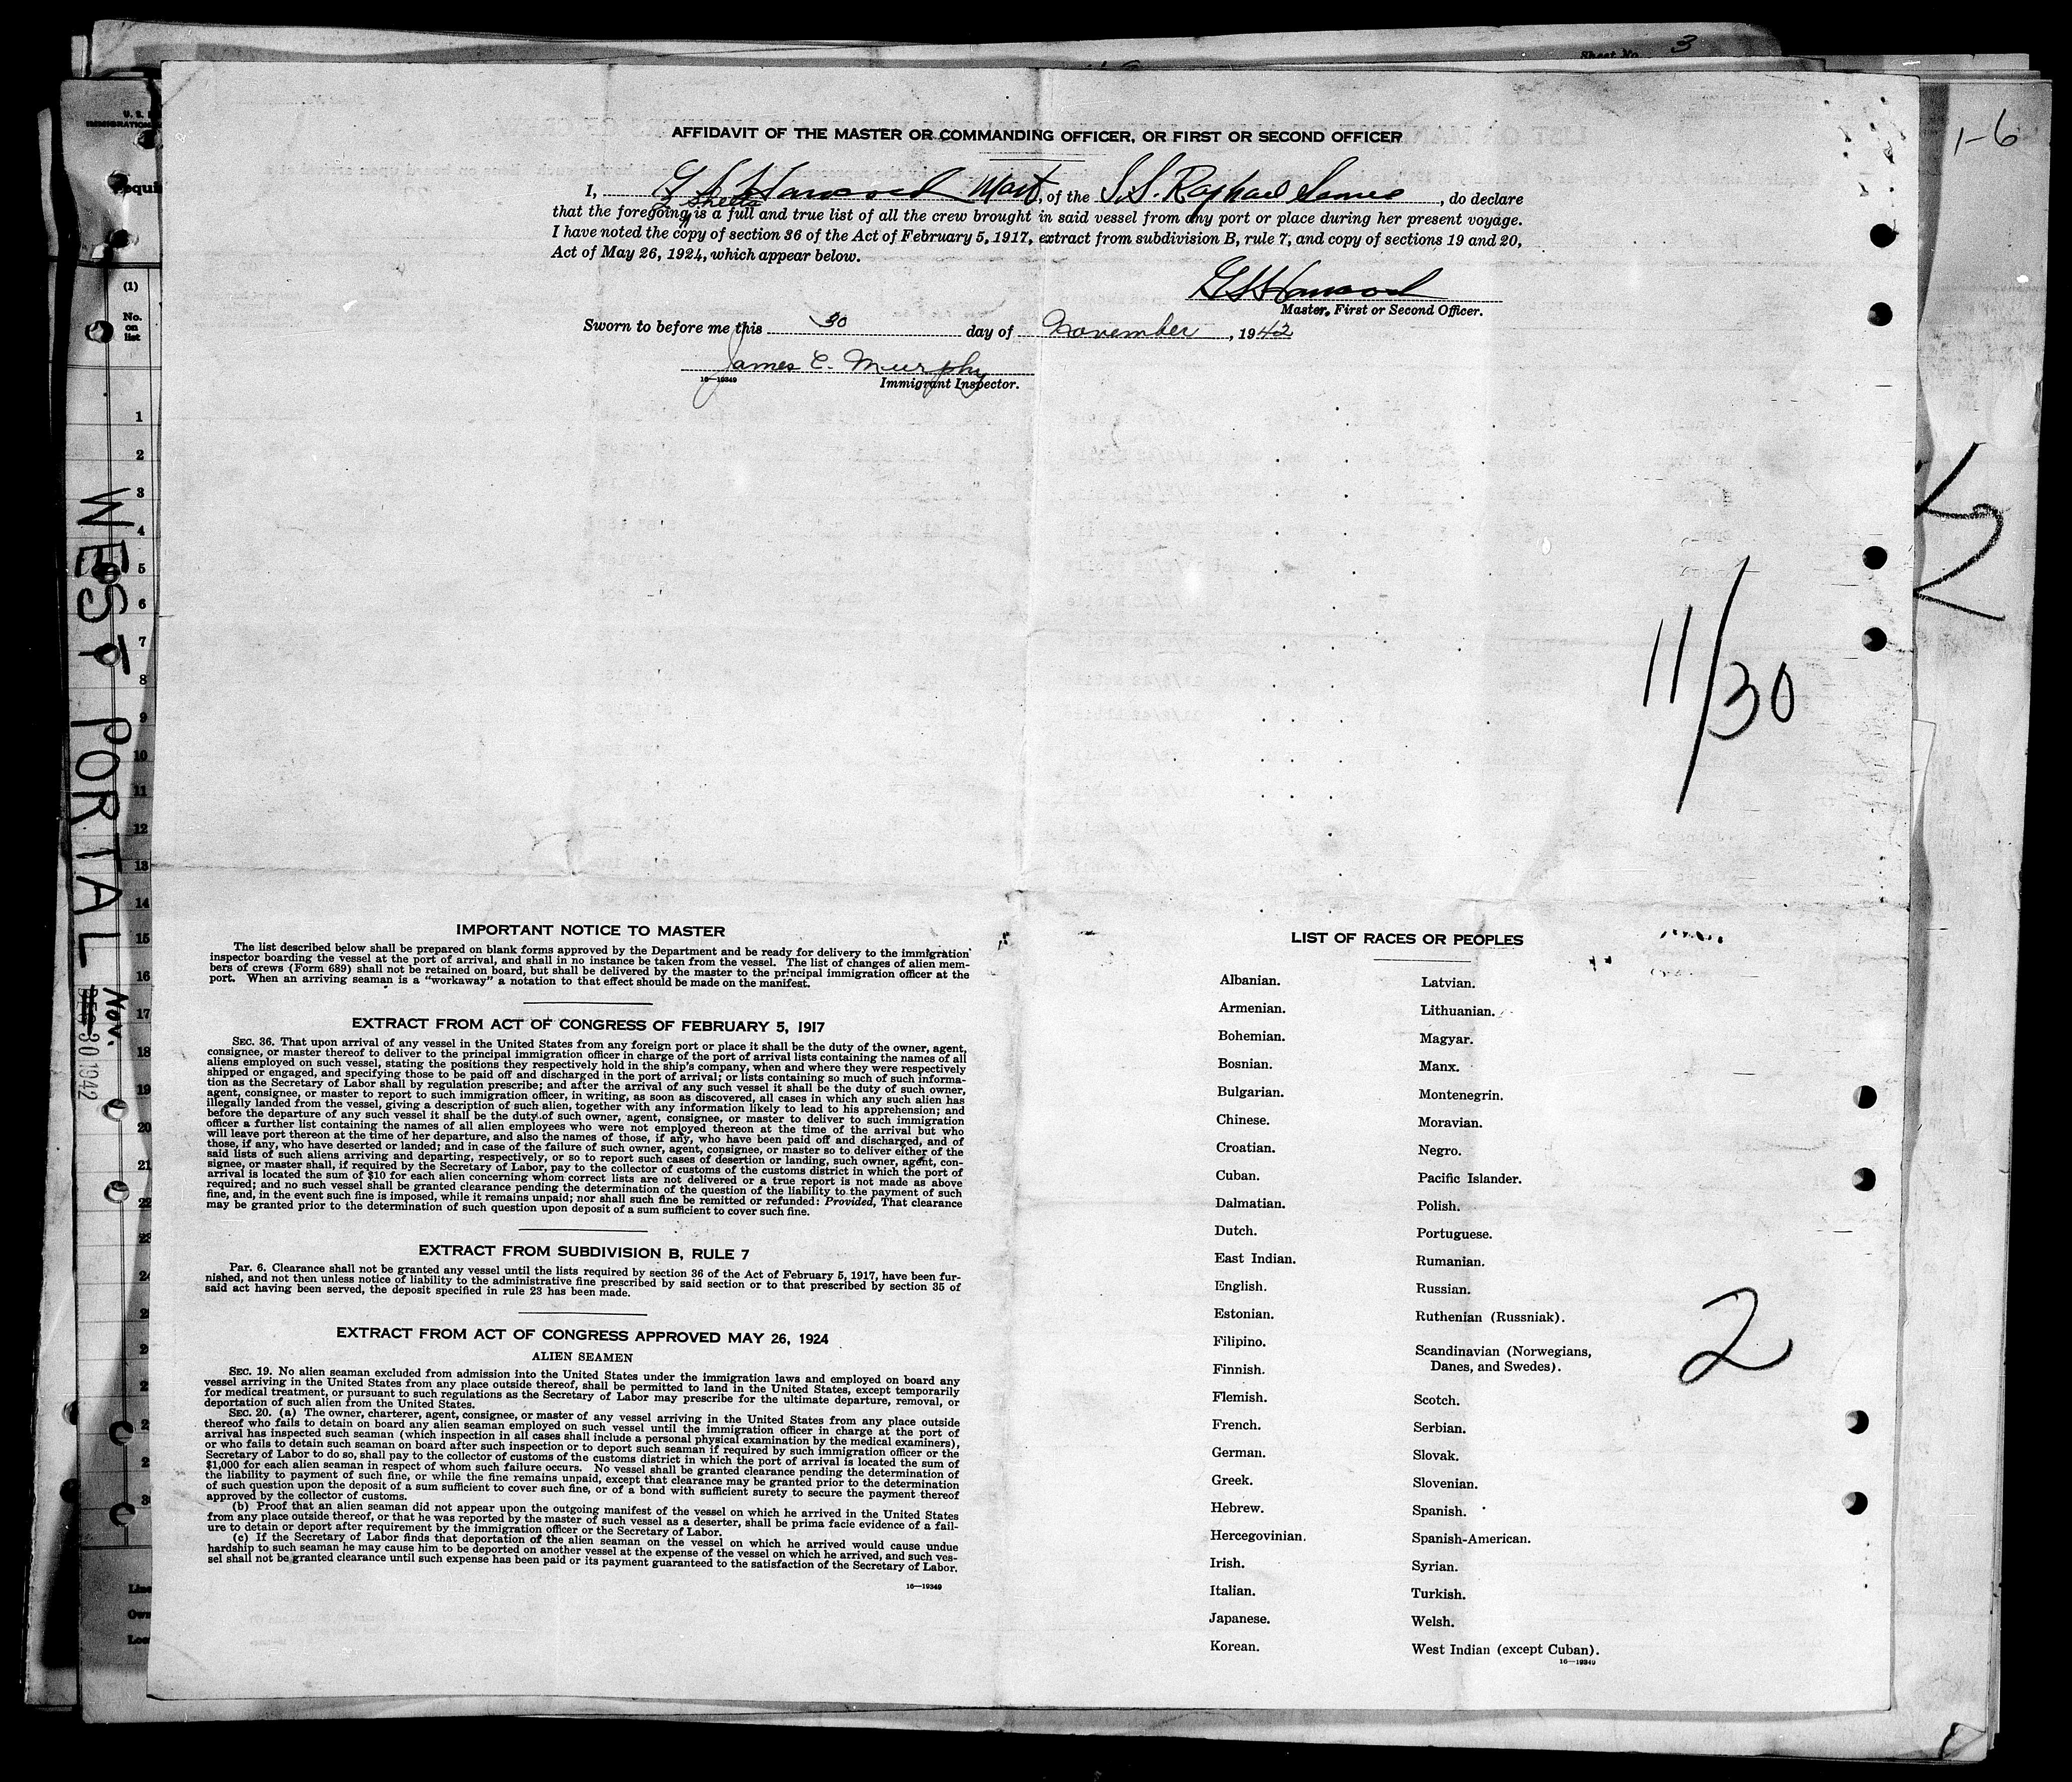 Sheet No. 3
1-6
U. S.
IMMIGRATION
AFFIDAVIT OF THE MASTER OR COMMANDING OFFICER, OR FIRST OR SECOND OFFICER
I, G S Hancock Mast, of the S.S. Raphael Semes, do declare
2 Sheets
that the foregoing is a full and true list of all the crew brought in said vessel from any port or place during her present voyage.
I have noted the copy of section 36 of the Act of February 5, 1917, extract from subdivision B, rule 7, and copy of sections 19 and 20,
Act of May 26, 1924, which appear below.
G S Hancock
Master, First or Second Officer.
Sworn to before me this 30 day of November, 1942
James E. Murphy
16—19349 Immigrant Inspector.
(1)
No.
on
list
1
2
3
4
5
6
7
8
9
10
11
12
13
14
15
16
17
18
19
20
21
22
23
WEST PORTAL
Nov.
30 1942
11/30
2
IMPORTANT NOTICE TO MASTER
The list described below shall be prepared on blank forms approved by the Department and be ready for delivery to the immigration
inspector boarding the vessel at the port of arrival, and shall in no instance be taken from the vessel. The list of changes of alien mem-
bers of crews (Form 689) shall not be retained on board, but shall be delivered by the master to the principal immigration officer at the
port. When an arriving seaman is a "workaway" a notation to that effect should be made on the manifest.
EXTRACT FROM ACT OF CONGRESS OF FEBRUARY 5, 1917
SEC. 36. That upon arrival of any vessel in the United States from any foreign port or place it shall be the duty of the owner, agent,
consignee, or master thereof to deliver to the principal immigration officer in charge of the port of arrival lists containing the names of all
aliens employed on such vessel, stating the positions they respectively hold in the ship's company, when and where they were respectively
shipped or engaged, and specifying those to be paid off and discharged in the port of arrival; or lists containing so much of such informa-
tion as the Secretary of Labor shall by regulation prescribe; and after the arrival of any such vessel it shall be the duty of such owner,
agent, consignee, or master to report to such immigration officer, in writing, as soon as discovered, all cases in which any such alien has
illegally landed from the vessel, giving a description of such alien, together with any information likely to lead to his apprehension; and
before the departure of any such vessel it shall be the duty of such owner, agent, consignee, or master to deliver to such immigration
officer a further list containing the names of all alien employees who were not employed thereon at the time of the arrival but who
will leave port thereon at the time of her departure, and also the names of those, if any, who have been paid off and discharged, and of
those, if any, who have deserted or landed; and in case of the failure of such owner, agent, consignee, or master so to deliver either of the
said lists of such aliens arriving and departing, respectively, or so to report such cases of desertion or landing, such owner, agent, con-
signee, or master shall, if required by the Secretary of Labor, pay to the collector of customs of the customs district in which the port of
arrival is located the sum of $10 for each alien concerning whom correct lists are not delivered or a true report is not made as above
required; and no such vessel shall be granted clearance pending the determination of the question of the liability to the payment of such
fine, and, in the event such fine is imposed, while it remains unpaid; nor shall such fine be remitted or refunded: Provided, That clearance
may be granted prior to the determination of such question upon deposit of a sum sufficient to cover such fine.
EXTRACT FROM SUBDIVISION B, RULE 7
Par. 6. Clearance shall not be granted any vessel until the lists required by section 36 of the Act of February 5, 1917, have been fur-
nished, and not then unless notice of liability to the administrative fine prescribed by said section or to that prescribed by section 35 of
said act having been served, the deposit specified in rule 23 has been made.
EXTRACT FROM ACT OF CONGRESS APPROVED MAY 26, 1924
ALIEN SEAMEN
SEC. 19. No alien seaman excluded from admission into the United States under the immigration laws and employed on board any
vessel arriving in the United States from any place outside thereof, shall be permitted to land in the United States, except temporarily
for medical treatment, or pursuant to such regulations as the Secretary of Labor may prescribe for the ultimate departure, removal, or
deportation of such alien from the United States.
SEC. 20. (a) The owner, charterer, agent, consignee, or master of any vessel arriving in the United States from any place outside
thereof who fails to detain on board any alien seaman employed on such vessel until the immigration officer in charge at the port of
arrival has inspected such seaman (which inspection in all cases shall include a personal physical examination by the medical examiners),
or who fails to detain such seaman on board after such inspection or to deport such seaman if required by such immigration officer or the
Secretary of Labor to do so, shall pay to the collector of customs of the customs district in which the port of arrival is located the sum of
$1,000 for each alien seaman in respect of whom such failure occurs. No vessel shall be granted clearance pending the determination of
the liability to payment of such fine, or while the fine remains unpaid, except that clearance may be granted prior to the determination
of such question upon the deposit of a sum sufficient to cover such fine, or of a bond with sufficient surety to secure the payment thereof
approved by the collector of customs.
(b) Proof that an alien seaman did not appear upon the outgoing manifest of the vessel on which he arrived in the United States
from any place outside thereof, or that he was reported by the master of such vessel as a deserter, shall be prima facie evidence of a fail-
ure to detain or deport after requirement by the immigration officer or the Secretary of Labor.
(c) If the Secretary of Labor finds that deportation of the alien seaman on the vessel on which he arrived would cause undue
hardship to such seaman he may cause him to be deported on another vessel at the expense of the vessel on which he arrived, and such ves-
sel shall not be granted clearance until such expense has been paid or its payment guaranteed to the satisfaction of the Secretary of Labor.
16—19349
LIST OF RACES OR PEOPLES
Albanian.
Armenian.
Bohemian.
Bosnian.
Bulgarian.
Chinese.
Croatian.
Cuban.
Dalmatian.
Dutch.
East Indian.
English.
Estonian.
Filipino.
Finnish.
Flemish.
French.
German.
Greek.
Hebrew.
Hercegovinian.
Irish.
Italian.
Japanese.
Korean.
Latvian.
Lithuanian.
Magyar.
Manx.
Montenegrin.
Moravian.
Negro.
Pacific Islander.
Polish.
Portuguese.
Rumanian.
Russian.
Ruthenian (Russniak).
Scandinavian (Norwegians,
Danes, and Swedes).
Scotch.
Serbian.
Slovak.
Slovenian.
Spanish.
Spanish-American.
Syrian.
Turkish.
Welsh.
West Indian (except Cuban).
16—19349
2